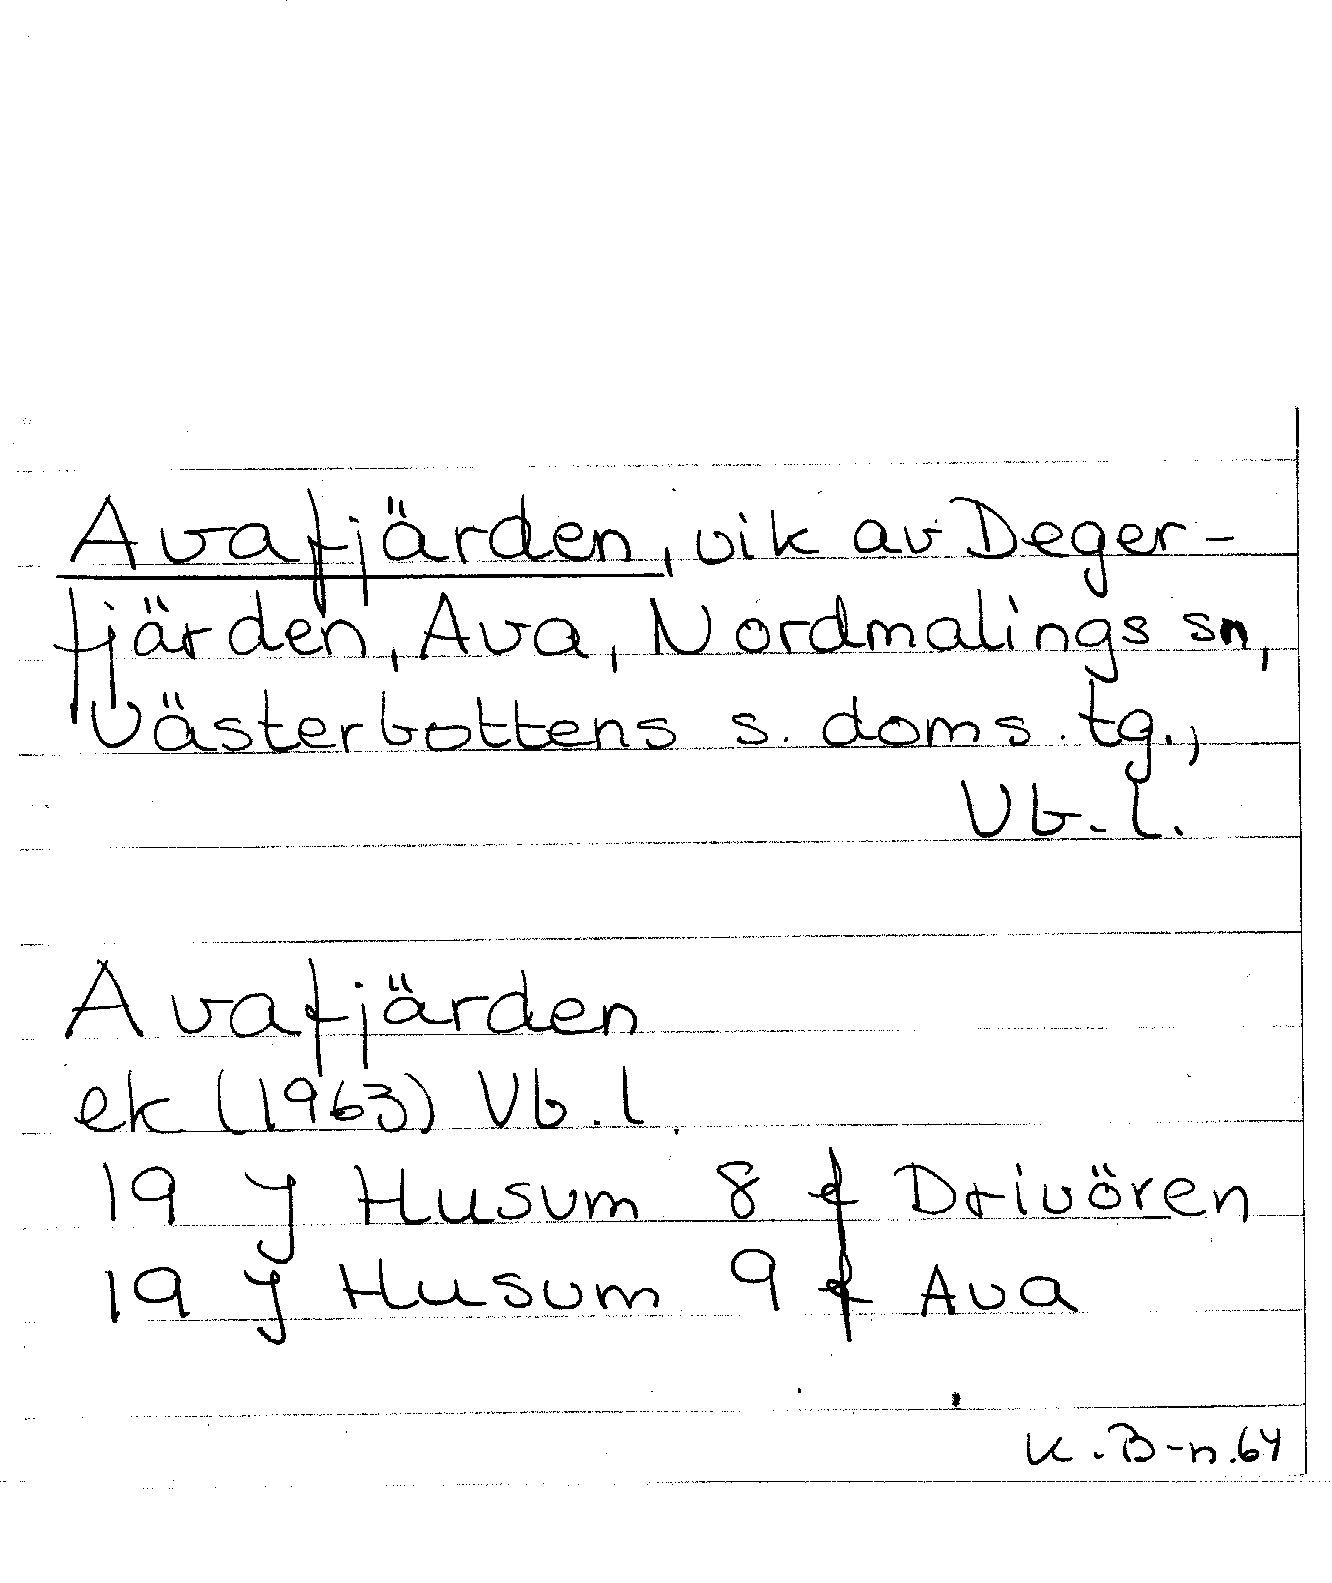 Avafjärden, vik av Deger-
fjärden, Ava, Nordmalings sn,
Västerbottens s. doms. tg.,
Vb. l.
Avafjärden
ek (1963) Vb. l.
19 J Husum 8 f Drivören
19 J Husum 9 f Ava
K. B-n. 64